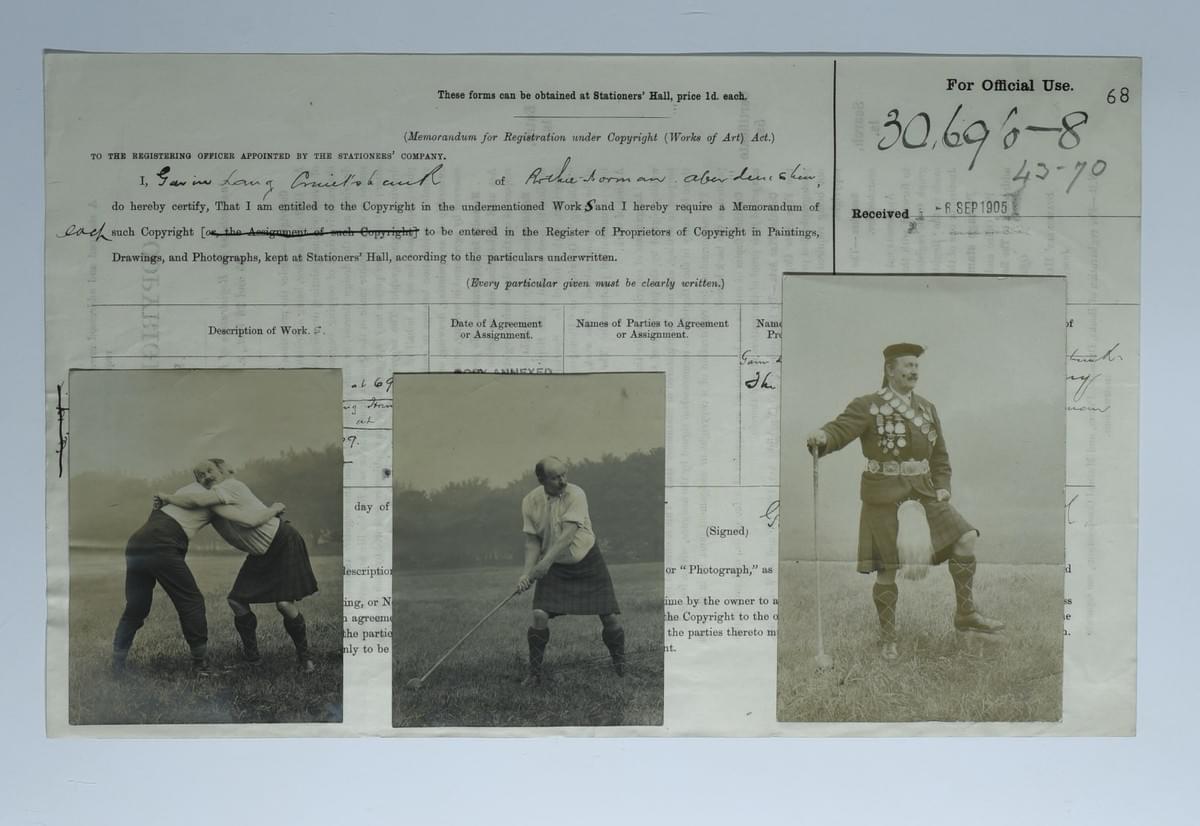 These forms can be obtained at Stationers' Hall, price 1d. each.
For Official Use.
68
(Memorandum for Registration under Copyright (Works of Art) Act.)
30,696-8
43-70
TO THE REGISTERING OFFICER APPOINTED BY THE STATIONERS' COMPANY.
I, Gavin Lang Cruickshank of Rothie-Norman Aberdeenshire,
do hereby certify, That I am entitled to the Copyright in the undermentioned Work s and I hereby require a Memorandum of
Received -6 SEP 1905
each such Copyright [or, the Assignment of such Copyright] to be entered in the Register of Proprietors of Copyright in Paintings,
Drawings, and Photographs, kept at Stationers' Hall, according to the particulars underwritten.
(Every particular given must be clearly written.)
Description of Work. s.
Date of Agreement
or Assignment.
Names of Parties to Agreement
or Assignment.
Nam
Pr
of
COPY ANNEXED
at 69
at
day of
(Signed)
descriptio
or "Photograph," as
d
ing, or N
ime by the owner to a
ss
n agreeme
the Copyright to the o
e
the partic
the parties thereto m
n.
nly to be
nt.